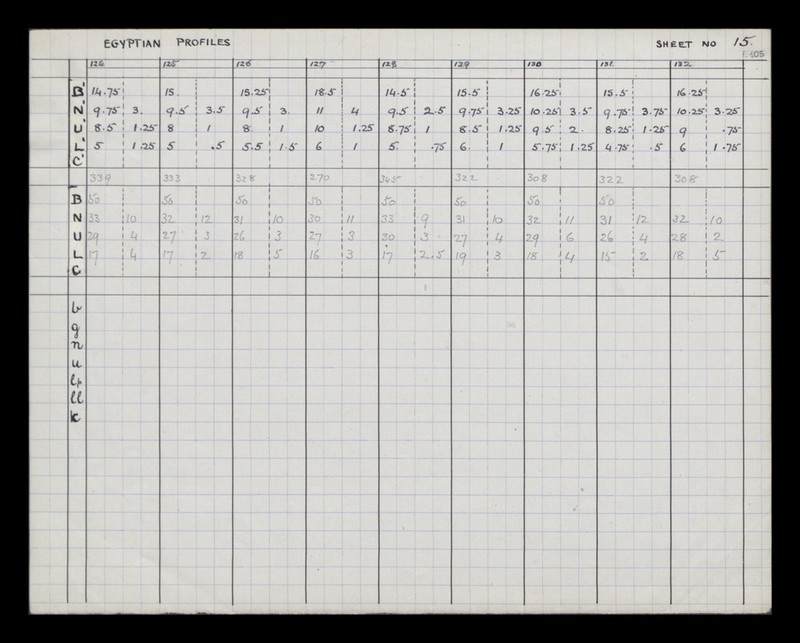 EGYPTIAN PROFILES SHEET NO 15.
F.405
124 125 126 127 128 129 130 131. 132
B' 14.75 15. 15.25 18.5 14.5 15.5 16.25 15.5 16.25
N' 9.75 3. 9.5 3.5 9.5 3. 11 4 9.5 2.5 9.75 3.25 10.25 3.5 9.75 3.75 10.25 3.25
U' 8.5 1.25 8 1 8. 1 10 1.25 8.75 1 8.5 1.25 9.5 2. 8.25 1.25 9 .75
L' 5 1.25 5 .5 5.5 1.5 6 1 5. .75 6. 1 5.75 1.25 4.75 .5 6 1.75
C'
339 333 328 270 345 322 308 322 308
B 50 50 50 50 50 50 50 50
N 33 10 32 12 31 10 30 11 33 9 31 10 32 11 31 12 32 10
U 29 4 27 3 26 3 27 3 30 3 27 4 29 6 26 4 28 2
L 17 4 17 2 18 5 16 3 17 2.5 19 3 18 4 15 2 18 5
C
b
g
n
u
ll
k